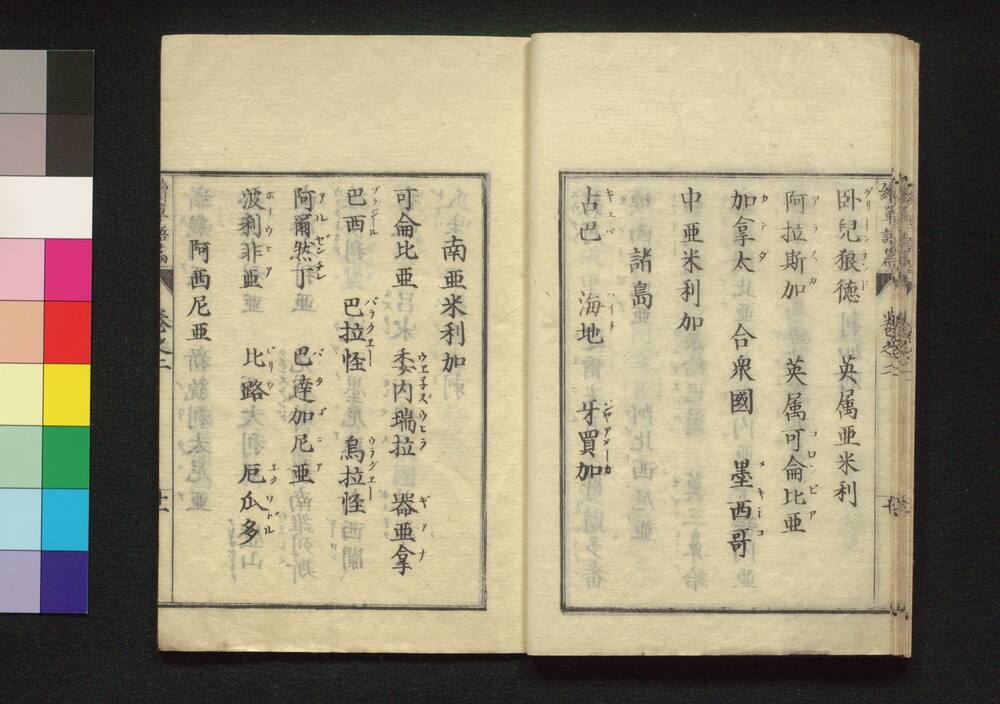 卧兒狼德　英属亜米利
グリーンランド
阿拉斯加　英属可侖比亜
アラスカ　コロンビア
加拿太　合衆國　墨西哥
カナダ　メキシコ
中亜米利加
諸島
古巴　海地　牙買加
キュバ　ハイチ　ジヤアメーカ
南亜米利加
可侖比亜　委内瑞拉　器亜拿
ウエネズウヒラ　ギアナ
巴西　巴拉怪　烏拉怪
ブラジール　パラクエー　ウラグエー
阿爾然丁　巴達加尼亜
アルゼンチレ　パタゴニア
波利非亜　比路　厄瓜多
ボリウヒア　ピリウ　エクワドル
阿西尼亜